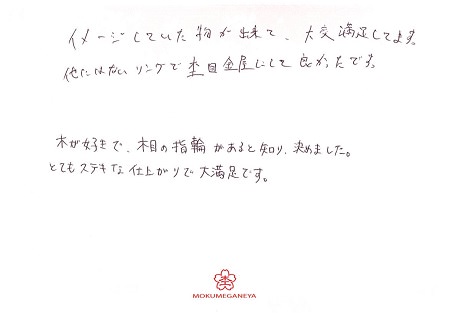 イメージしていた物が出来て、大変満足してます。
他にはないリングで杢目金屋にして良かったです。
木が好きで、木目の指輪があると知り、決めました。
とてもステキな仕上がりで大満足です。
MOKUMEGANEYA